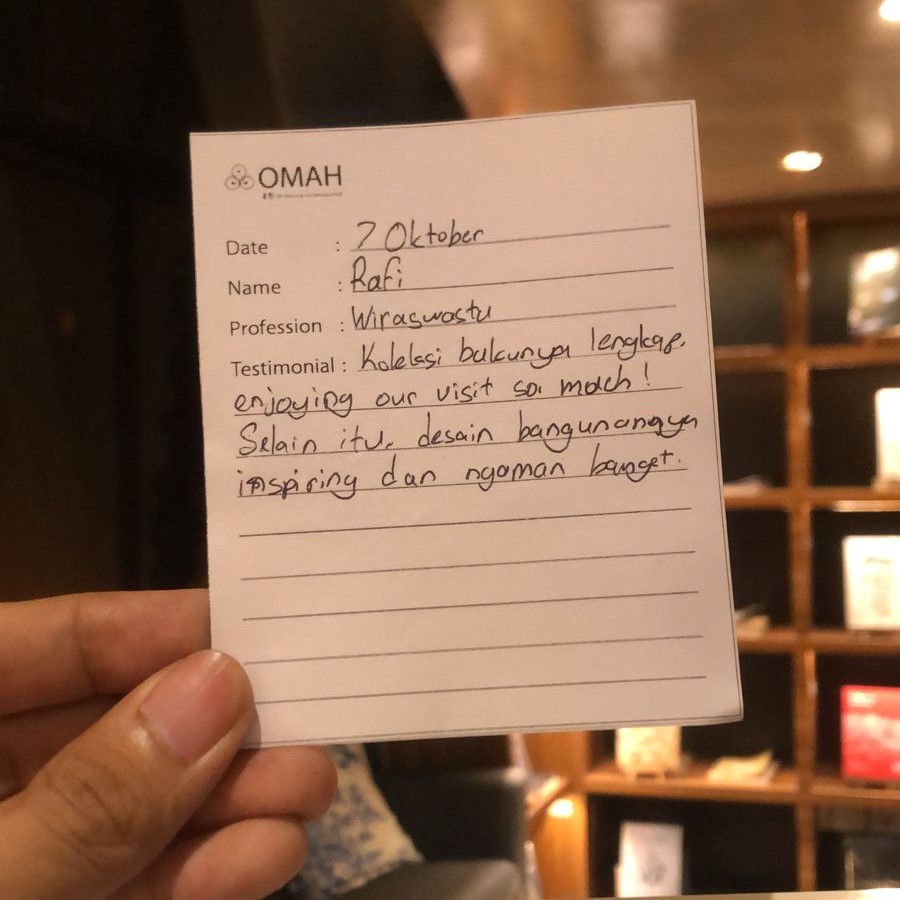 OMAH
Date : 7 Oktober
Name : Rafi
Profession : Wiraswastu
Testimonial : Koleksi bukunya lengkap,
enjoying our visit so much!
Selain itu, desain bangunannya
inspiring dan nyaman banget.